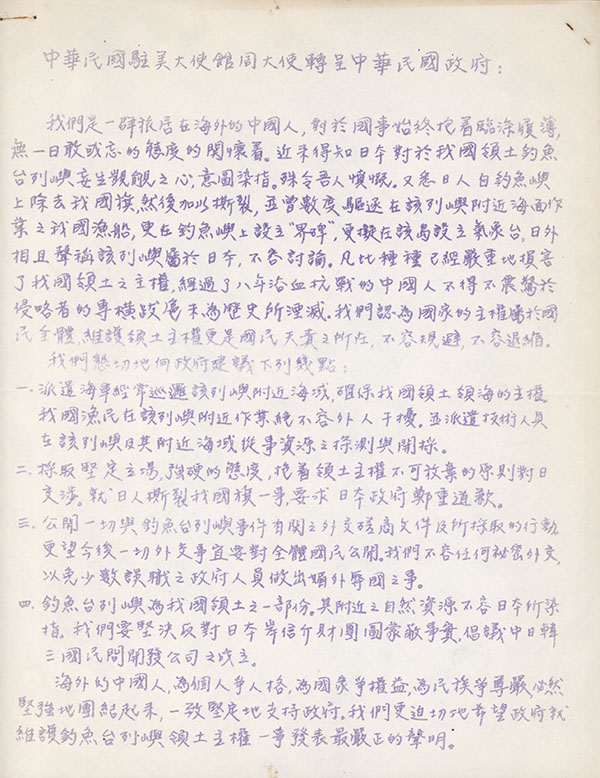 中華民國駐美大使館周大使轉呈中華民國政府：
我們是一群旅居在海外的中國人，對於國事始終抱着臨深履薄，
無一日敢或忘的態度的関懷着。近來得知日本對於我國領土釣魚
台列嶼妄生覬覦之心，意圖染指。殊令吾人憤慨。又悉日人自釣魚嶼
上除去我國旗，然後加以撕裂，並曾數度驅逐在該列嶼附近海面作
業之我國漁船，更在釣魚嶼上設立"界碑"，更擬在該島設立氣象台，日外
相且聲稱該列嶼屬於日本，不容討論。凡此種種已經嚴重地損害
了我國領土之主權，經過了八年浴血抗戰的中國人不得不震驚於
侵略者的專橫跋扈未為歷史所湮滅。我們認為國家的主權屬於國
民全體，維護領土主權更是國民天責之所在，不容規避，不容退縮。
我們懇切地向政府建議下列幾點：
一. 派遣海軍經常巡邏該列嶼附近海域，確保我國領土領海的主權。
我國漁民在該列嶼附近作業絕不容外人干擾。並派遣技術人員
在該列嶼及其附近海域從事資源之探測與開採。
二. 採取堅定立場，強硬的態度，抱着領土主權不可放棄的原則對日
交涉。就日人撕裂我國旗一事，要求日本政府鄭重道歉。
三. 公開一切與釣魚台列嶼事件有関之外交磋商文件及所採取的行動，
更望今後一切外交事宜要對全體國民公開。我們不容任何祕密外交，
以免少數誤職之政府人員做出媚外辱國之事。
四. 釣魚台列嶼為我國領土之一部份。其附近之自然資源不容日本所染
指。我們要堅決反對日本岸信介財團圖蒙蔽事實，倡議中日韓
三國民間開發公司之成立。
海外的中國人，為個人爭人格，為國家爭權益，為民族爭尊嚴，必然
堅強地團結起來，一致堅定地支持政府。我們更迫切地希望政府就
維護釣魚台列嶼領土主權一事發表最嚴正的聲明。